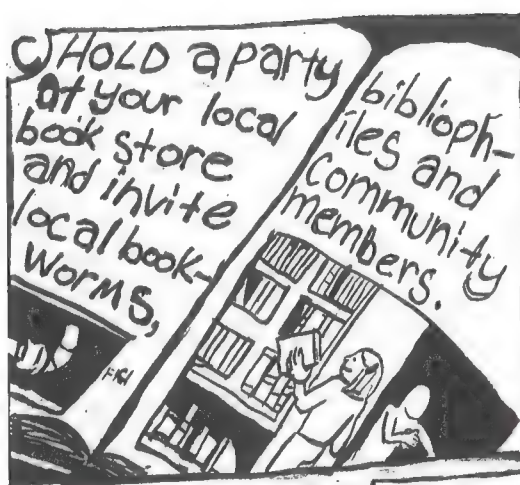 HOLD a party
at your local
book store
and invite
local book-
worms,
biblioph-
iles and
community
members.